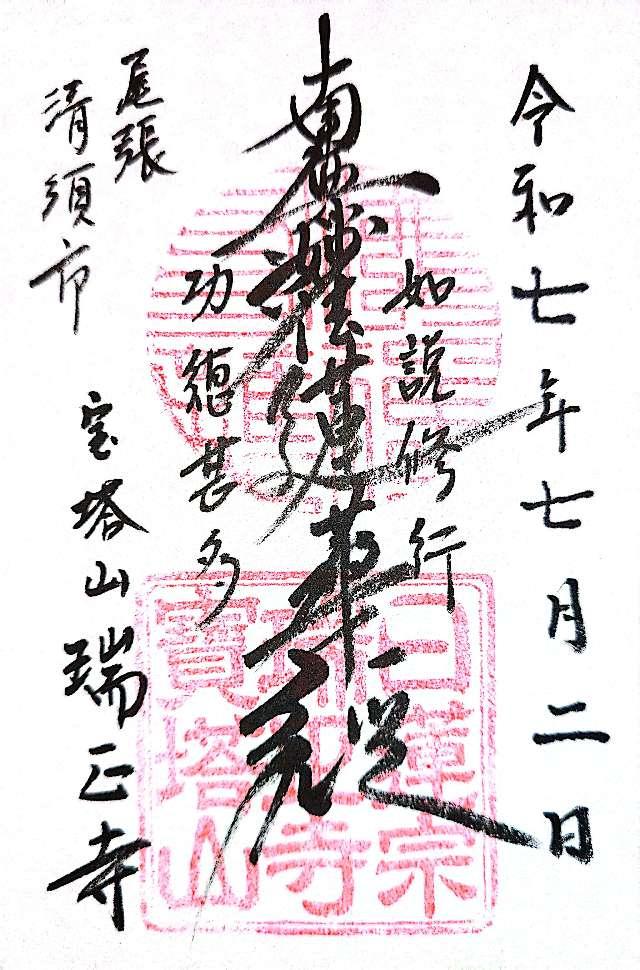 令和七年七月二日
如説修行
南無妙法蓮華経
功徳甚多
尾張
清須市
宝塔山瑞正寺
日蓮宗
瑞正寺
寶塔山